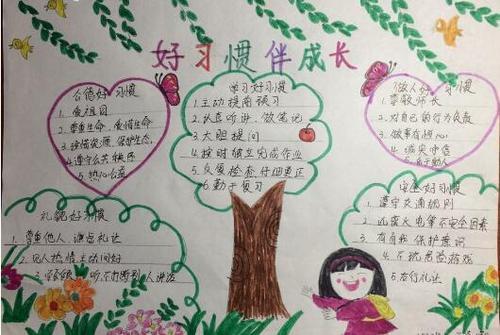 好习惯伴成长
公德好习惯
1. 爱祖国
2. 尊重生命,爱惜生命
3. 珍惜资源,保护生态
4. 遵守公共秩序
5. 热心公益
学习好习惯
1. 主动提前预习
2. 认真听讲,做笔记
3. 大胆提问
4. 按时独立完成作业
5. 反复检查,仔细更正
6. 勤于复习
做人好习惯
1. 尊敬师长
2. 对自己的行为负责
3. 做事有恒心
4. 诚实守信
5.
礼貌好习惯
1. 尊重他人,谦虚礼让
2. 见人热情主动问好
3. 听,不打断别人讲话
安全好习惯
1. 遵守交通规则
2. 远离火电等不安全因素
3. 有自我保护意识
4. 不玩危险游戏
5. 右行礼让